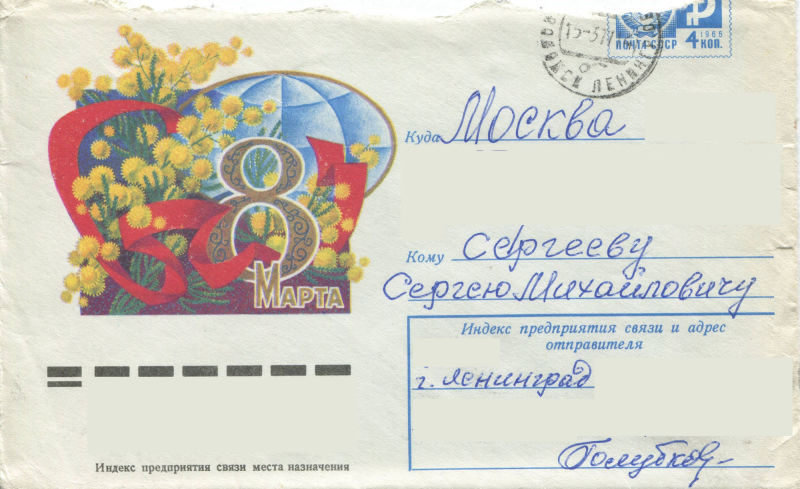 ПОЧТА СССР
1966
4 КОП.
ЛЕНИНГ
Куда Москва
8
МАРТА
Кому Сергееву
Сергею Михайловичу
Индекс предприятия связи и адрес
отправителя
г. Ленинград
Голубков
Индекс предприятия связи места назначения